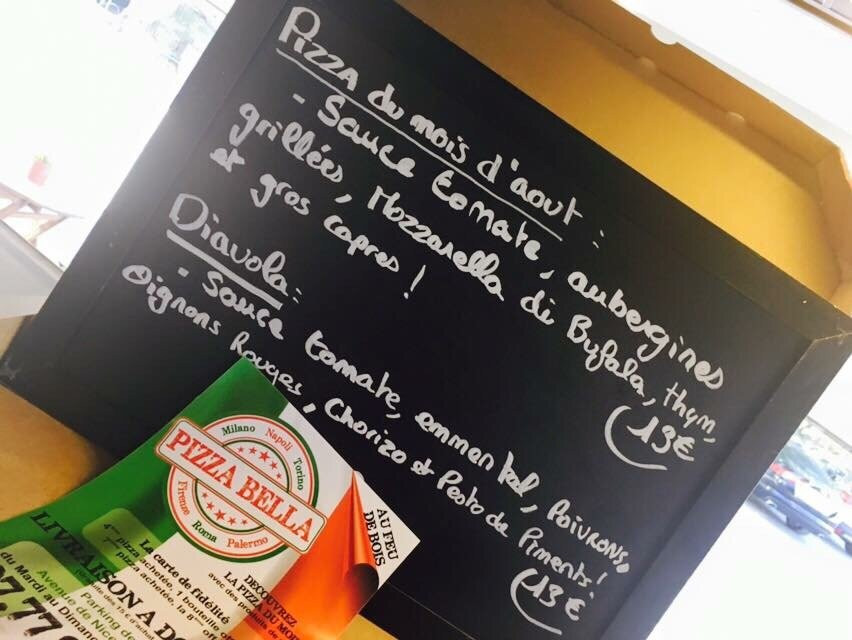 Pizza du mois d'aout :
- Sauce tomate, aubergines
grillées, Mozzarella di Bufala, thym,
et gros capres !
(13€
Diavola :
- Sauce tomate, emmental, Poivrons,
oignons Rouges, Chorizo et Pesto de Piments !
(13€
Milano Napoli Torino
PIZZA BELLA
Firenze Roma Palermo
AU FEU
DE BOIS
DÉCOUVREZ
LA PIZZA DU MOIS
avec des produits de
La carte de fidélité
4ème pizza achetée, 1 bouteille
pizza achetée, la 8ème
LIVRAISON A DO
du Mardi au Dimanc
Avenue de Nice
Parking de
7.77